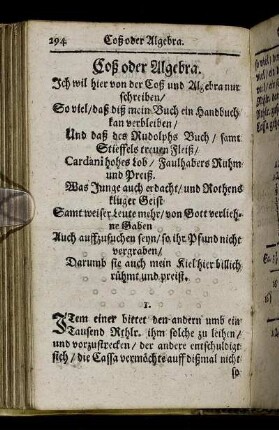 294 Coß oder Algebra.
Coß oder Algebra.
Ich wil hier von der Coß und Algebra nur
schreiben/
So viel/daß diß mein Buch ein Handbuch
kan verbleiben/
Und daß des Rudolphs Buch/ samt
Stieffels treuen Fleiß/
Cardani hohes Lob/ Faulhabers Ruhm
und Preiß.
Was Junge auch erdacht/ und Rothens
kluger Geist
Samt weiser Leute mehr/ von Gott verlieh-
ne Gaben
Auch auffzusuchen seyn/ so ihr Pfund nicht
vergraben/
Darumb sie auch mein Kiel hier billich
rühmt und preist.
1.
ITem einer bietet den andern umb ein
Tausend Rthlr. ihm solche zu leihen/
und vorzustrecken/ der andere entschuldigt
sich/ die Cassa vermöchte auff dißmal nicht
so